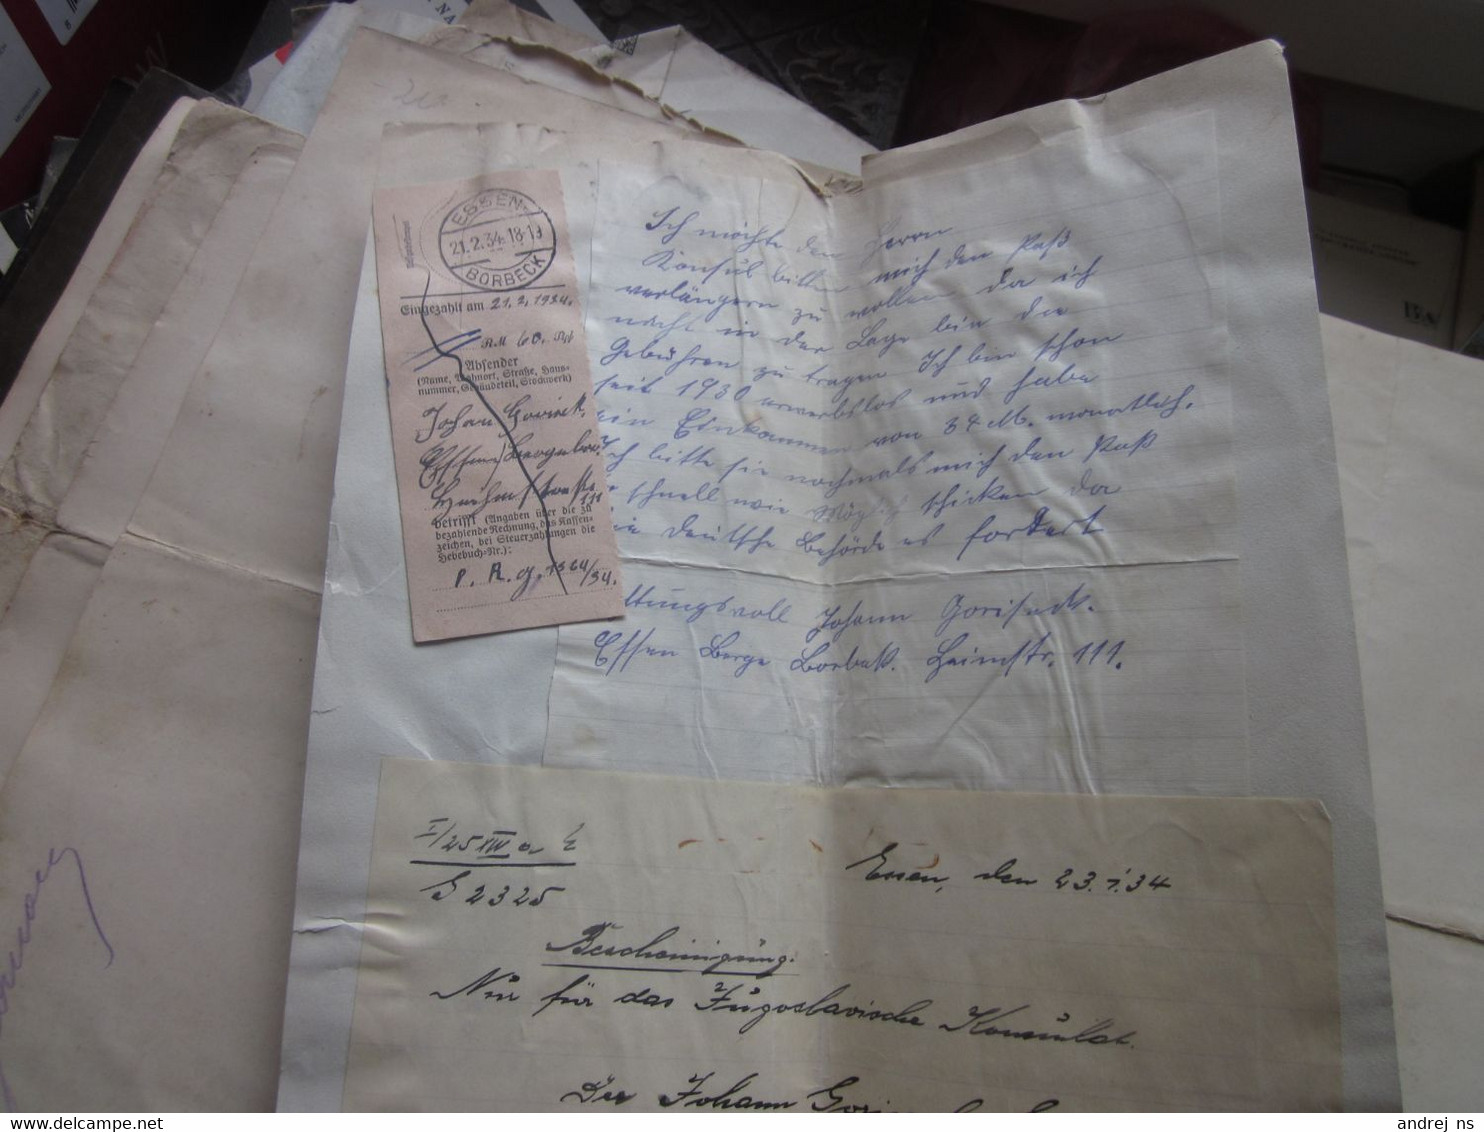 ESSEN-
21.2.34.18-19
BORBECK
Eingezahlt am 21.2.1934.
RM 60 Rpf
Absender
(Name, Wohnort, Straße, Haus-
nummer, Gebäudeteil, Stockwerk)
Johan
Essen
111
betrifft (Angaben über die zu
bezahlende Rechnung, das Kassen-
zeichen, bei Steuerzahlungen die
Hebebuch-Nr.):
P. R. g. 1364/34.
Ich möchte den Herrn
Konsul bitten mich den Paß
verlängern zu wollen da ich
nicht in der Lage bin die
Gebühren zu tragen Ich bin schon
seit 1930 erwerbslos und habe
ein Einkommen von 34 M. monatlich.
Ich bitte sie nochmals mich den Paß
schnell wie Möglich schicken da
die deutsche Behörde es fordert
Johann Goriseck.
Essen Berge Borbek. Heimstr. 111.
I/25 XIII a
G 2325
Essen, den 23.1.34
Bescheinigung.
Nur für das Jugoslavische Konsulat.
Der Johann
andrej ns